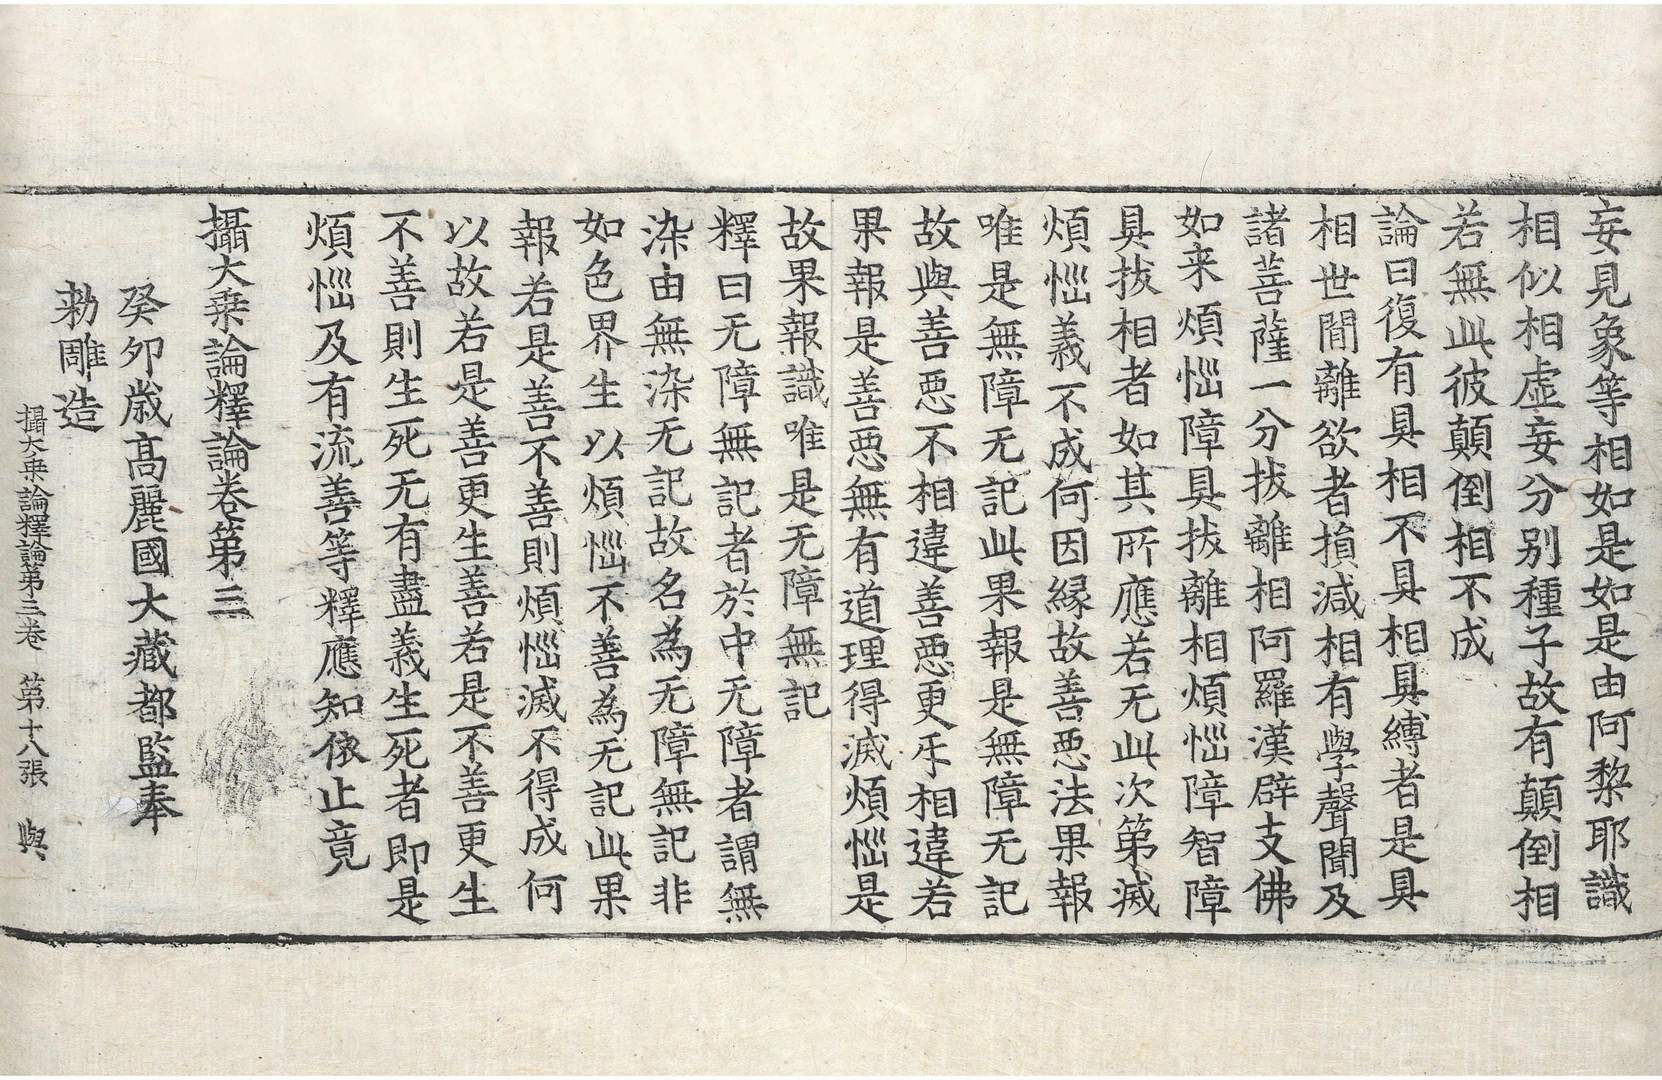 妄見象等相如是如是由阿黎耶識
相似相虛妄分別種子故有顛倒相
若無此彼顛倒相不成
論曰復有具相不具相具縛者是具
相世間離欲者損減相有學聲聞及
諸菩薩一分拔離相阿羅漢辟支佛
如来煩惱障具拔離相煩惱障智障
具拔相者如其所應若无此次第滅
煩惱義不成何因緣故善惡法果報
唯是無障无記此果報是無障无記
故與善惡不相違善惡更互相違若
果報是善惡無有道理得滅煩惱是
故果報識唯是无障無記
釋曰无障無記者於中无障者謂無
染由無染无記故名為无障無記非
如色界生以煩惱不善為无記此果
報若是善不善則煩惱滅不得成何
以故若是善更生善若是不善更生
不善則生死无有盡義生死者即是
煩惱及有流善等釋應知依止竟
攝大乗論釋論卷第三
癸卯歲高麗國大藏都監奉
勅雕造
攝大乗論釋論第三卷 第十八張 與